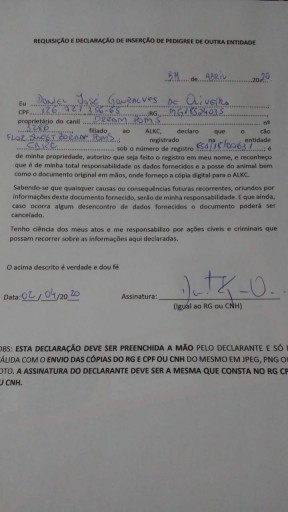 REQUISIÇÃO E DECLARAÇÃO DE INSERÇÃO DE PEDIGREE DE OUTRA ENTIDADE
BH de ABRIL 2020
Eu Daniel José Gonçalves de Oliveira,
CPF RG
proprietário do canil Dream Pom's nº
filiado ao ALKC, declaro que o cão
registrado na entidade
CBKC sob o número de registro é
de minha propriedade, autorizo que seja feito o registro em meu nome, e reconheço
que é de minha total responsabilidade os dados fornecidos e a posse do animal bem
como o documento original em mãos, onde forneço a cópia digital para o ALKC.
Sabendo-se que quaisquer causas ou consequências futuras recorrentes, oriundos por
informações deste documento fornecido, serão de minha responsabilidade. E que ainda,
caso ocorra algum desencontro de dados fornecidos o documento poderá ser
cancelado.
Tenho ciência dos meus atos e me responsabilizo por ações cíveis e criminais que
possam recorrer sobre as informações aqui declaradas.
O acima descrito é verdade e dou fé
Data: 02/04/2020 Assinatura:
(Igual ao RG ou CNH)
OBS: ESTA DECLARAÇÃO DEVE SER PREENCHIDA A MÃO PELO DECLARANTE E SÓ É
VÁLIDA COM O ENVIO DAS CÓPIAS DO RG E CPF OU CNH DO MESMO EM JPEG, PNG OU
FOTO. A ASSINATURA DO DECLARANTE DEVE SER A MESMA QUE CONSTA NO RG CPF
OU CNH.